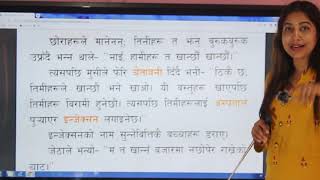 छोराहरूले मानेनन्; तिनीहरू त झन् बुरुकबुरुक
उफ्रँदै भन्न थाले- "नाइँ हामीहरू त खान्छौं खान्छौं।"
त्यसपछि मुसीले फेरि चेतावनी दिँदै भनी- "ठिकै छ,
तिमीहरूले खान्छौ भने खाओ। यी वस्तुहरू खाएपछि
तिमीहरू बिरामी हुनेछौ। त्यसपछि तिमीहरूलाई अस्पताल
पुऱ्याएर इन्जेक्सन लगाइनेछ।"
इन्जेक्सनको नाम सुन्नेबित्तिकै बच्चाहरू डराए।
जेठाले भन्यो- "म त खान्नँ बजारमा नछोपेर राखेको